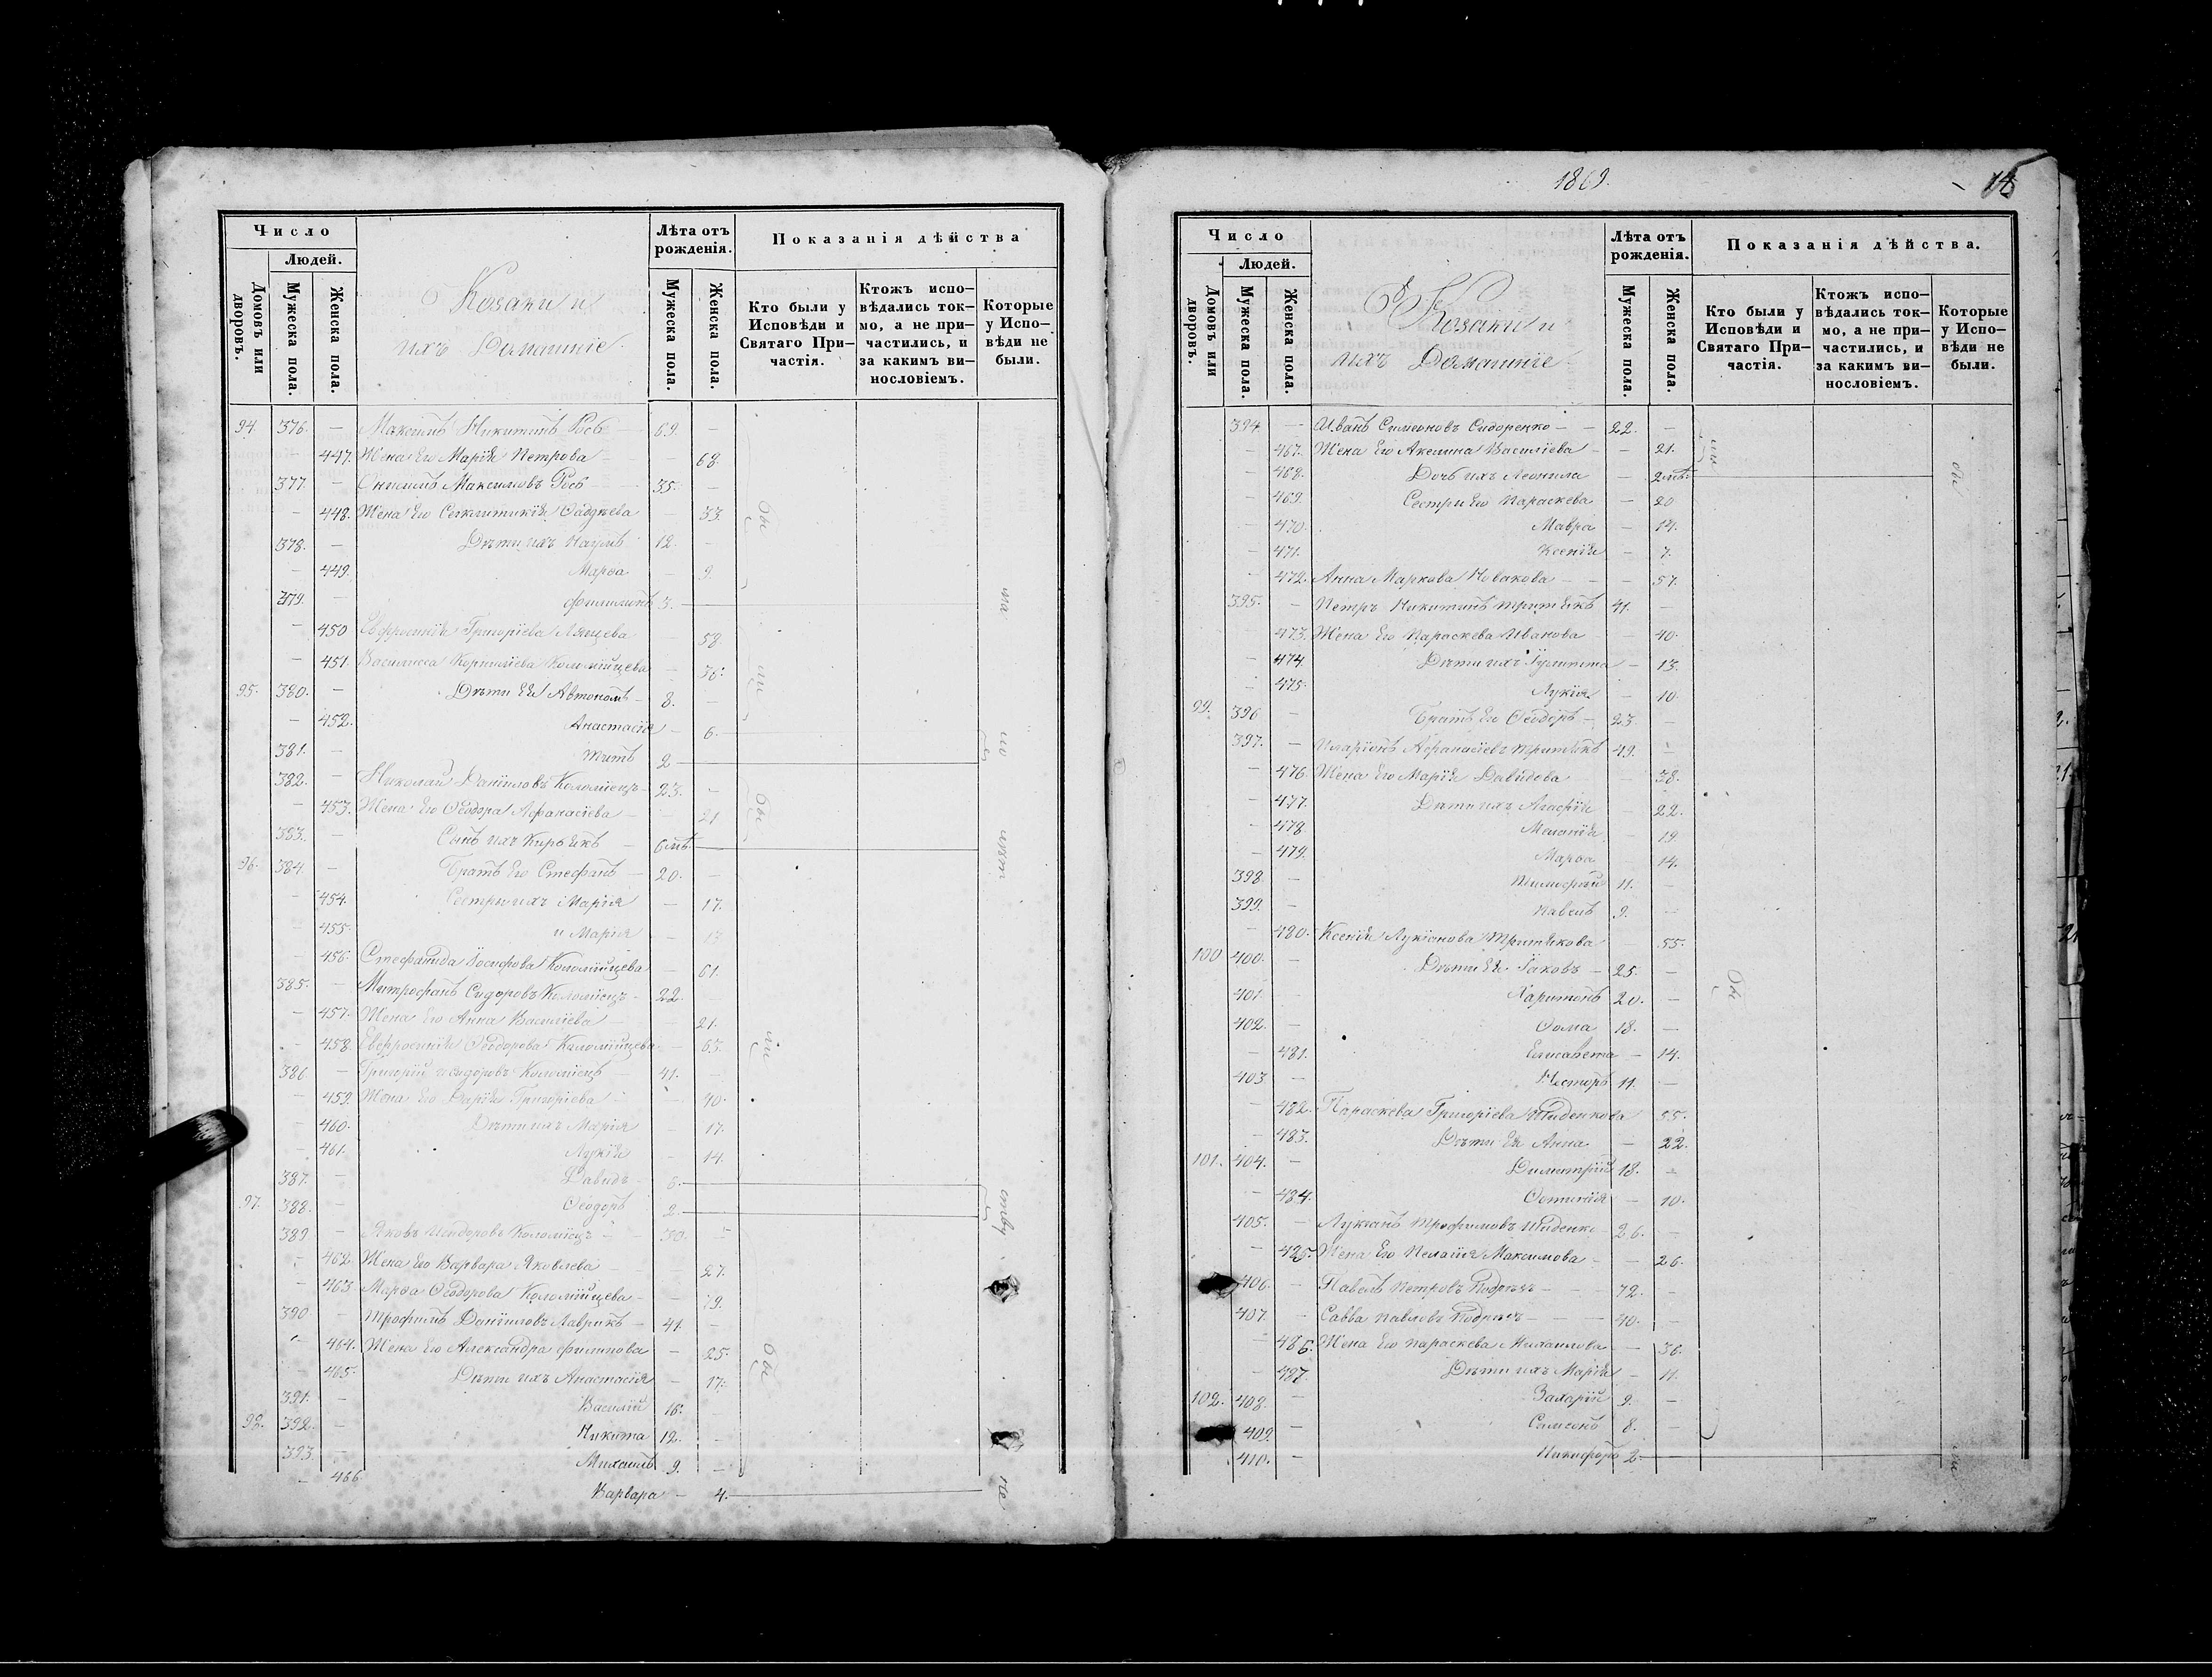 Число
Людей.
Домовъ или дворовъ.
Мужеска пола.
Женска пола.
Козаки и
ихъ Домашніе
Лѣта отъ рожденія.
Мужеска пола.
Женска пола.
Показанія дѣйства
Кто были у Исповѣди и Святаго При-частія.
Ктожъ испо-вѣдались ток-мо, а не при-частились, и за какимъ ви-нословіемъ.
Которые у Испо-вѣди не были.
94. 376. — Максимъ Никитинъ 69. —
— 447. Жена Его Марія Петрова — 68.
377. — Онисимъ Максимовъ 35. —
— 448. Жена Его — 33.
378. — Дѣти ихъ Наумъ 12. —
— 449. Марѳа — 9.
379. — Филимонъ 3.
— 450 Григоріева — 58.
— 451. Василисса Корниліева Коломійцева — 36.
95. 380. — Дѣти Ея Автономъ — 8. —
— 452. Анастасія — 6.
381. — Титъ 2
382. — Николай Даніиловъ Коломіецъ 23. —
— 453. Жена Его Ѳеодора Аѳанасіева — 21
383. — Сынъ ихъ Кирьякъ — 6 мѣ.
96. 384. — Братъ Его Стефанъ — 20. —
— 454. Сестры ихъ Марія — 17.
— 455. и Марія — 13
— 456. Стефанида Іосифова Коломійцева — 61.
385. — Митрофанъ Сидоровъ Коломіецъ — 22.
— 457. Жена Его Анна Василіева — 21.
— 458. Евфросинія Ѳеодорова Коломійцева — 63.
386. — Григорій Исидоровъ Коломіецъ — 41. —
— 459. Жена Его Дарія Григоріева — 40.
— 460. Дѣти ихъ Марія — 17.
— 461. Лукія — 14.
387. — Давидъ 6.
97. 388. — Ѳеодоръ 2.
389 — Яковъ Исидоровъ Коломіецъ — 30. —
— 462 Жена Его Варвара Яковлева — 27.
— 463 Марѳа Ѳеодорова Коломійцева — 19.
390 — Трофимъ Даніиловъ Лаврикъ — 41. —
— 464. Жена Его Александра Филипова — 25.
— 465. Дѣти ихъ Анастасія — 17.
391. — Василій 16. —
98. 392. — Никита 12. —
393. — Михаилъ 9. —
— 466 Варвара — 4.
1869.
Число
Людей.
Домовъ или дворовъ.
Мужеска пола.
Женска пола.
Козаки и
ихъ Домашніе
Лѣта отъ рожденія.
Мужеска пола.
Женска пола.
Показанія дѣйства.
Кто были у Исповѣди и Святаго При-частія.
Ктожъ испо-вѣдались ток-мо, а не при-частились, и за какимъ ви-нословіемъ.
Которые у Испо-вѣди не были.
394. — Иванъ Симеоновъ Сидоренко — 22. —
— 467. Жена Его Акелина Василіева — 21.
— 468. Дочь ихъ Леонила — 2 мѣ.
— 469. Сестры Его Параскева — 20
— 470. Мавра — 14.
— 471. Ксенія — 7.
— 472. Анна Маркова Новакова — 57.
395. — Петръ Никитинъ 41. —
— 473. Жена Его Параскева Иванова — 40.
— 474. Дѣти ихъ Іулитта — 13.
— 475. Лукія — 10.
99. 396 — Братъ Его Ѳеодоръ — 23 —
397. — Иларіонъ Аѳанасіевъ 49. —
— 476. Жена Его Марія Давидова — 38.
— 477. Дѣти ихъ Агафія — 22.
— 478. Меланія — 19
— 479. Марѳа — 14.
398 — Тимофей 11. —
399. — Павелъ 9. —
— 480. Ксенія Лукіанова — 55.
100 400. — Дѣти Ея Іаковъ — 25. —
401. — Харитонъ 20. —
402. — Ѳома 18. —
— 481. Елисавета — 14.
403 — Несторъ 11. —
— 482. Параскева Григоріева Шиденкова 55.
— 483. Дѣти Ея Анна — 22.
101. 404. — Димитрій 18. —
— 484. Фотинія — 10.
405. — Лукіанъ Трофимовъ Шиденко — 26. —
— 485. Жена Его Пелагія Максимова — 26.
406. — Павелъ Петровъ — 72. —
407. — Савва Павловъ — 40. —
— 486. Жена Его Параскева Михаилова — 36.
— 487. Дѣти ихъ Марія — 11.
102. 408. — Захарій 9. —
409. — Самсонъ 8. —
410. — Никифоръ 2.